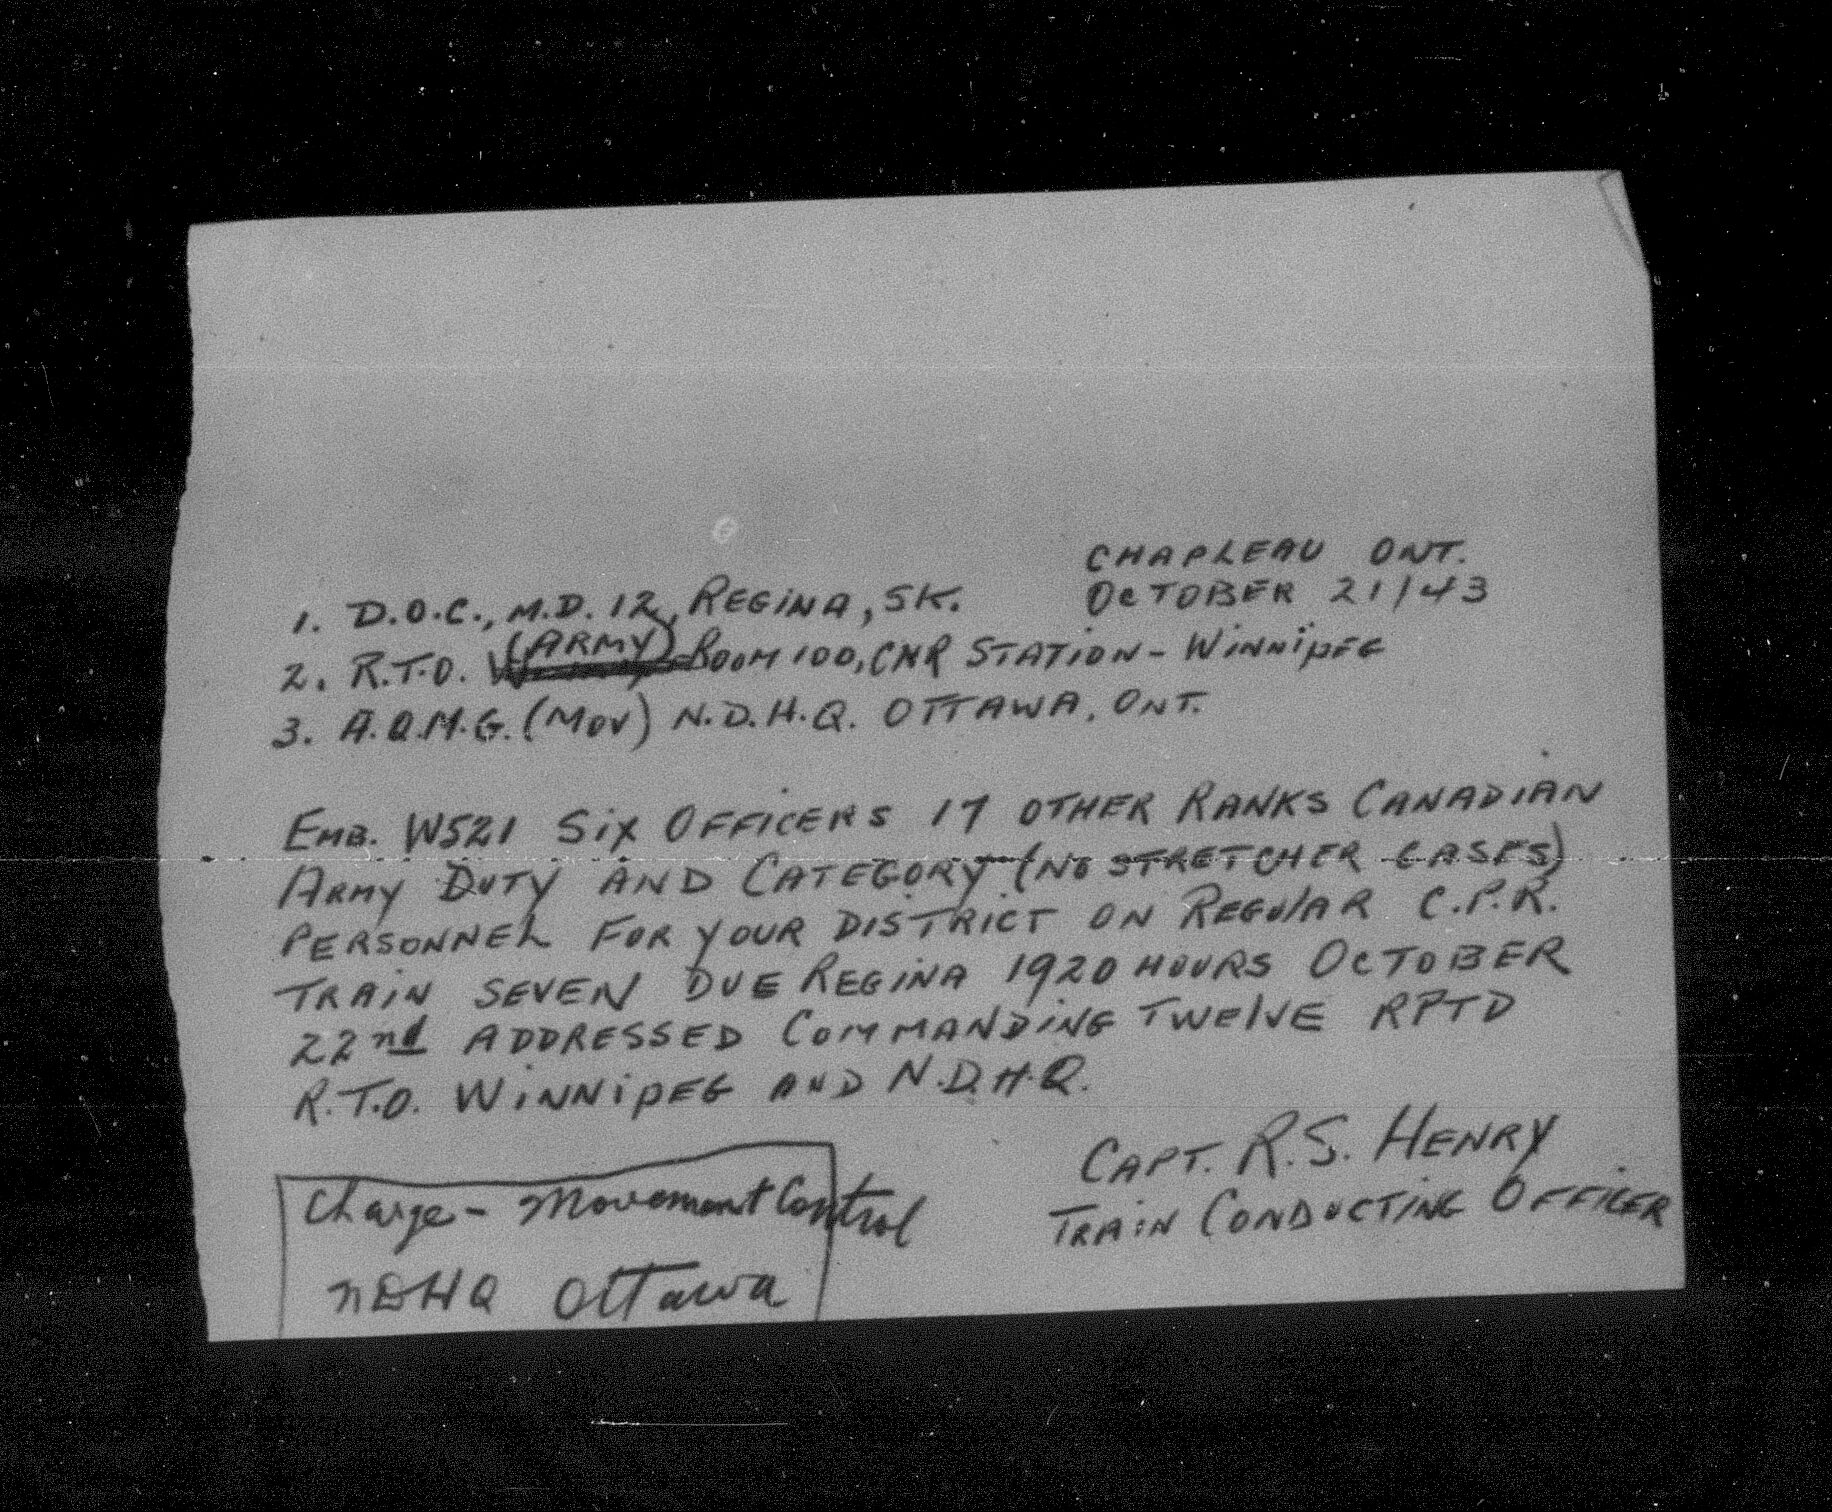 CHAPLEAU ONT.
OCTOBER 21/43
1. D.O.C., M.D. 12, REGINA, SK.
2. R.T.O. (ARMY) ROOM 100, CNR STATION - WINNIPEG
3. A.Q.M.G. (MOV) N.D.H.Q. OTTAWA, ONT.
EMB. W521 SIX OFFICERS 17 OTHER RANKS CANADIAN
ARMY DUTY AND CATEGORY (NO STRETCHER CASES)
PERSONNEL FOR YOUR DISTRICT ON REGULAR C.P.R.
TRAIN SEVEN DUE REGINA 1920 HOURS OCTOBER
22nd ADDRESSED COMMANDING TWELVE RPTD
R.T.O. WINNIPEG AND N.D.H.Q.
CAPT. R.S. HENRY
TRAIN CONDUCTING OFFICER
Charge - Movement Control
NDHQ Ottawa